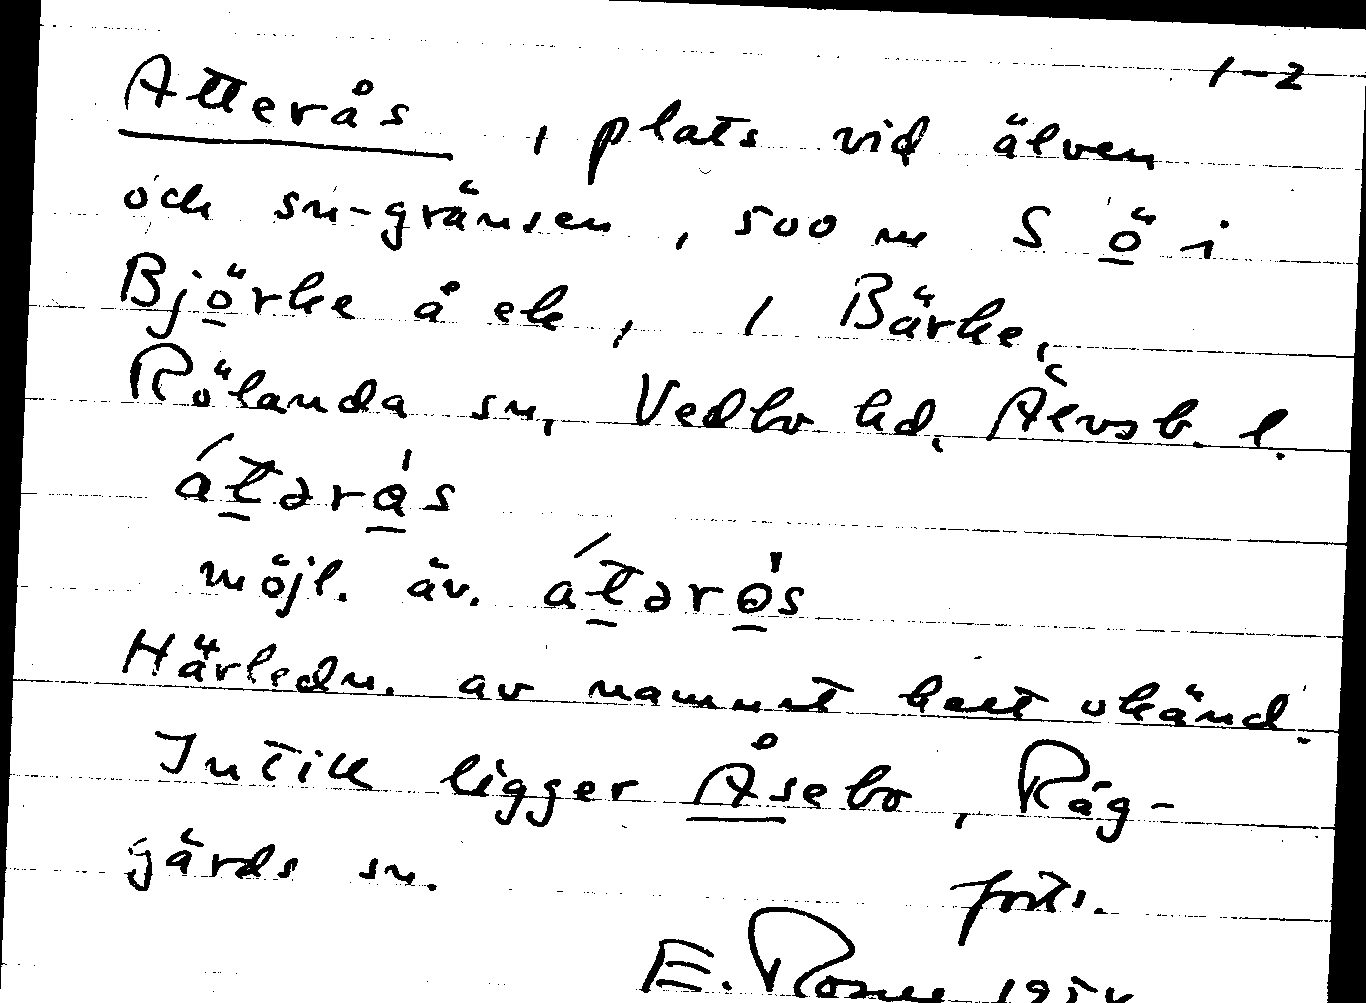 1-2
Atterås, plats vid älven
och sn-gränsen, 500 m S ö i
Björke å ek, 1 Bärke,
Rölanda sn, Vedbo hd, Älvsb. l.
át̲ərà̲s
möjl. äv. át̲ərò̲s
Härledn. av namnet helt okänd.
Intill ligger Åsebo, Råg-
gärds sn.
forts.
E.